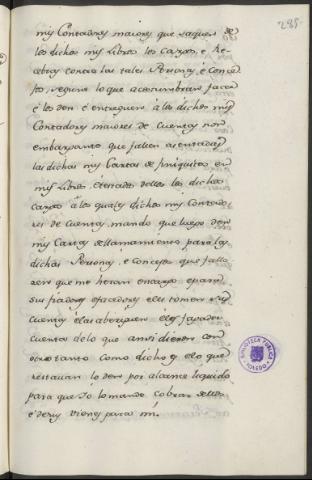 285
mis Contadores maiores que saquen de
los dichos mis Libros los Cargos, e Re-
cebtas contra las tales Personas, é Conce-
jos, segund lo que acostumbran facer
é los den é entreguen á los dichos mis
Contadores maiores de Cuentas non
embargante que fallen asentadas
las dichas mis Cartas de finiquitos en
mis Libros, é testados dellos los dichos
Cargos á los quales dichos mis Contado-
res de Cuentas, mando que luego den
mis Cartas de llamamiento para las
dichas Personas, é Concejos que falla-
ren que me heran encargo, e para
sus fiadores, e facedores e les tomen sus
Cuentas é las aberiguen é lo que fagades
Cuentas de lo que ansi dieren con
otro tanto como dicho es e lo que
restavan lo den por alcance liquido
para que Yo lo mande cobrar dellos
é de sus vienes para mi.
BIBLIOTECA PUBLICA
TOLEDO